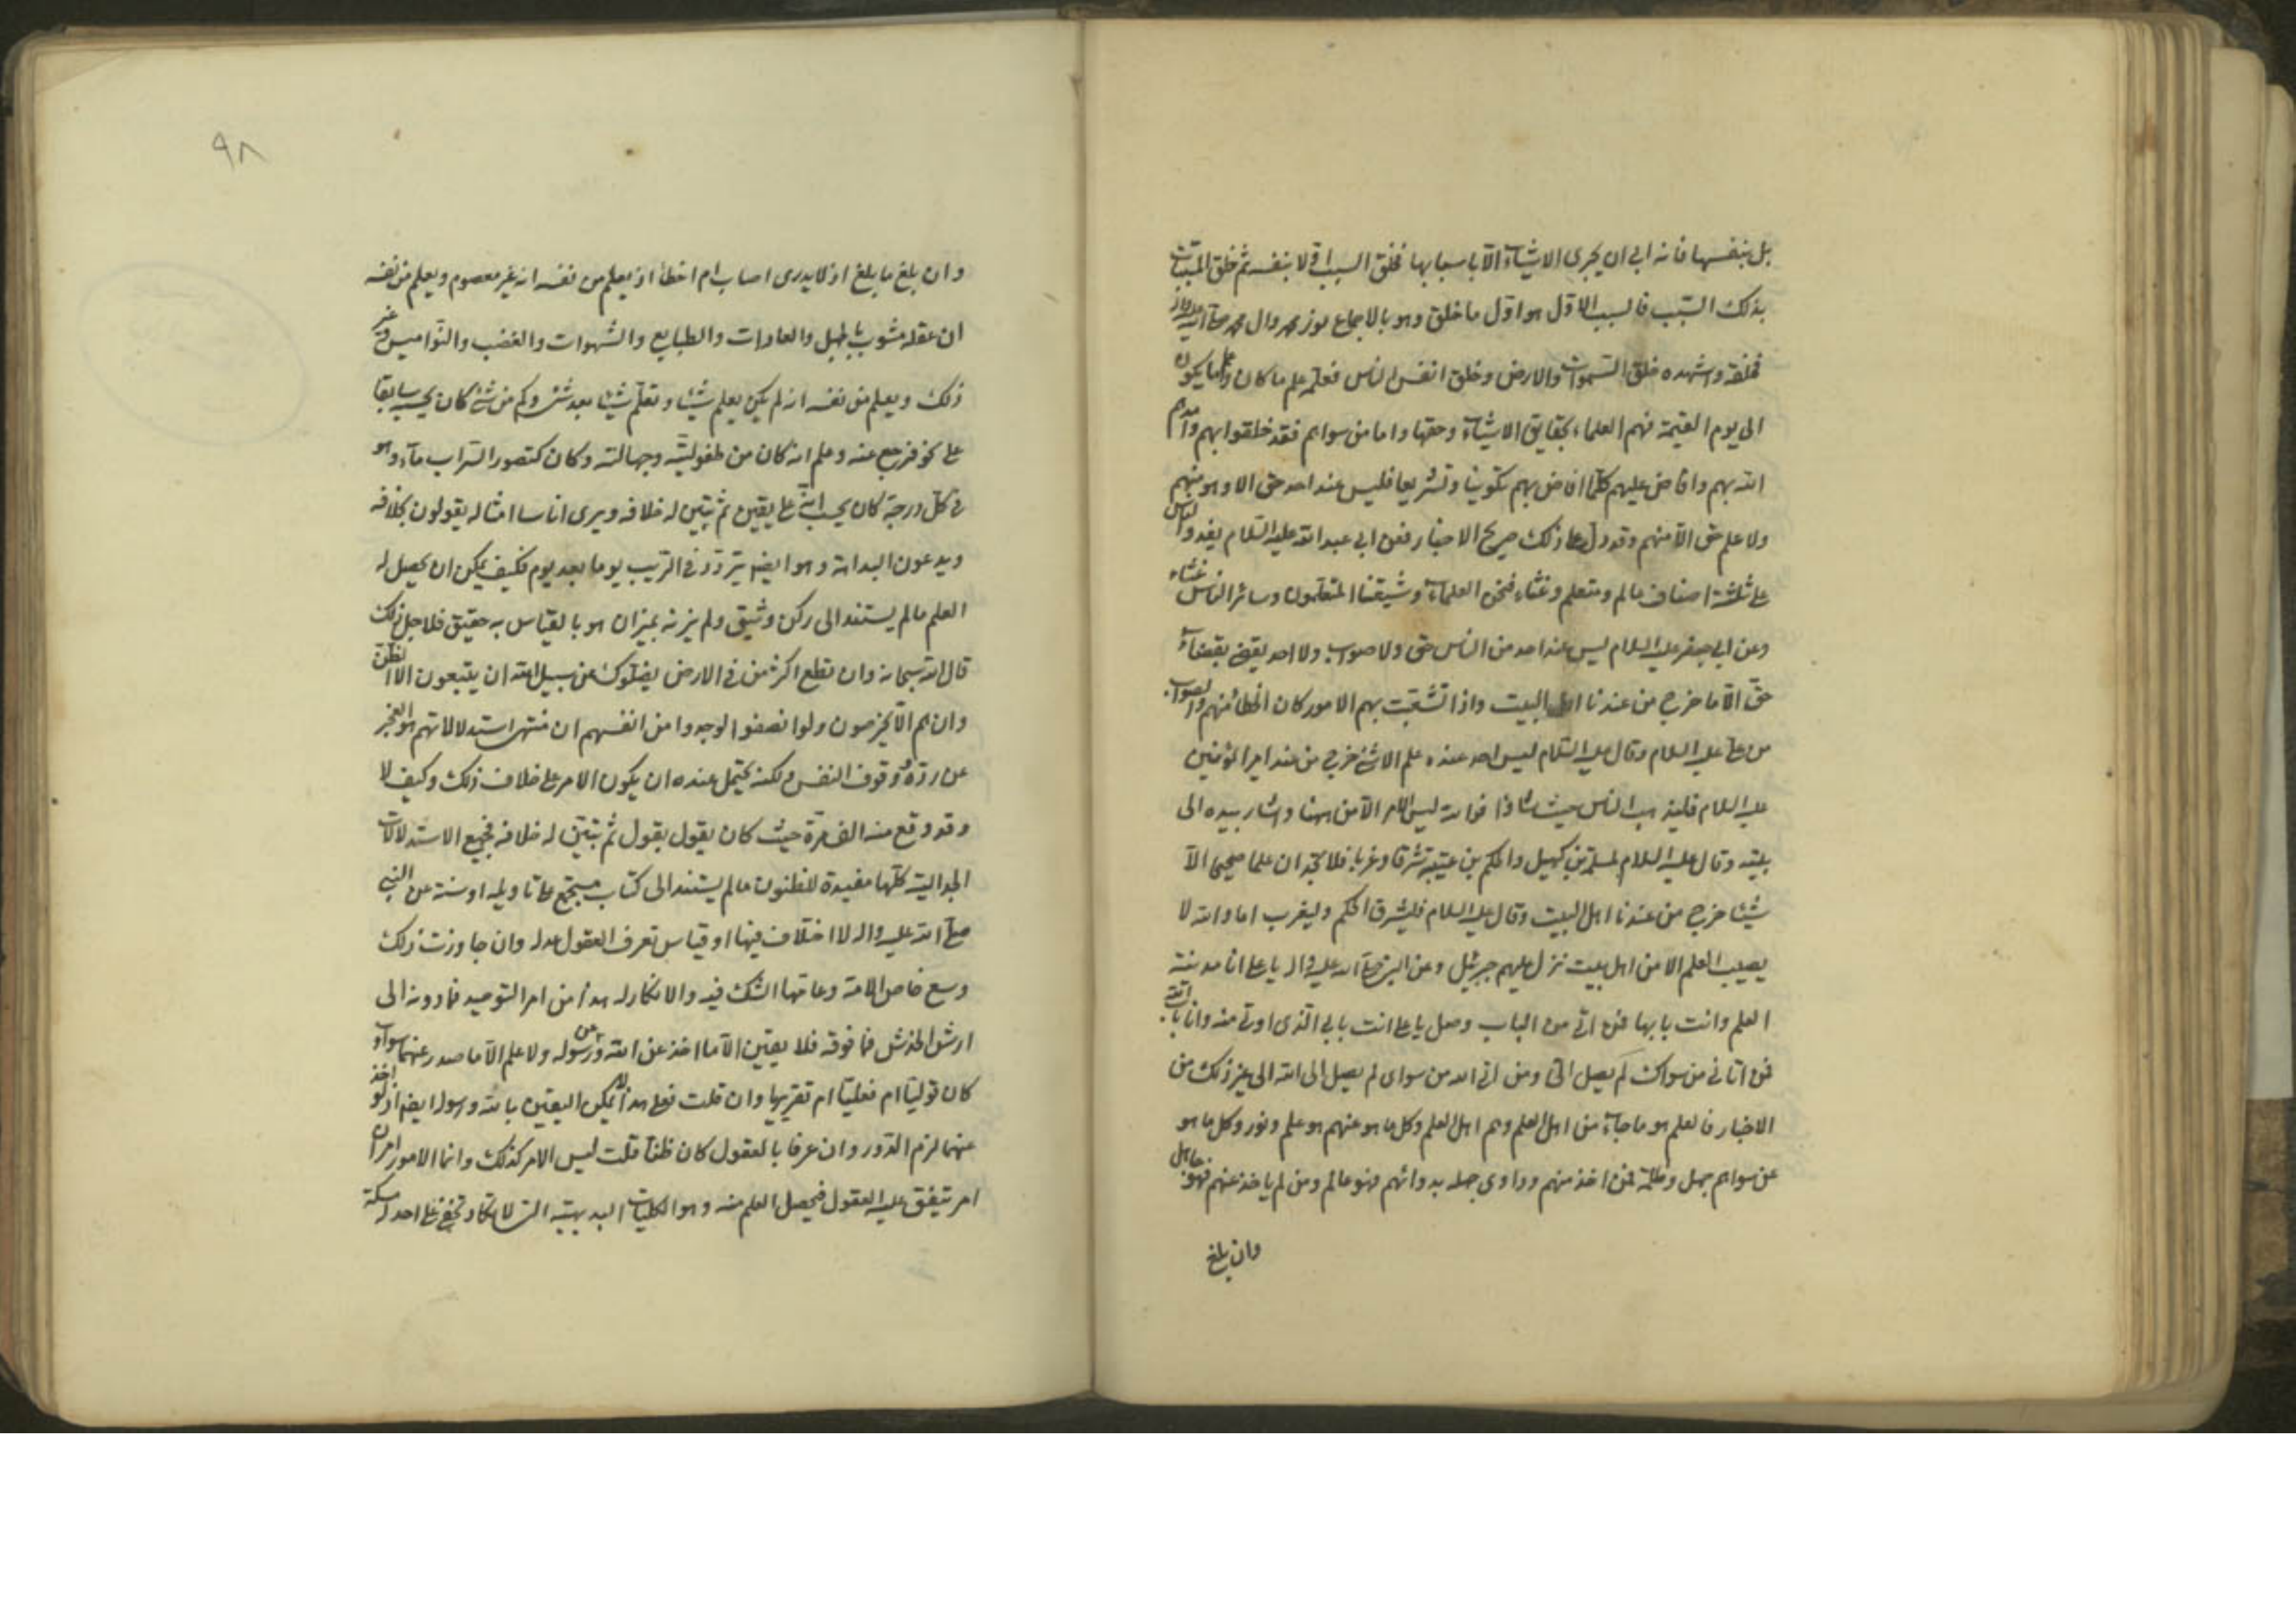 بل بنفسها فانه ابى ان يجرى الاشياء الا باسبابها فخلق السبب اولا بنفسه ثم خلق المسببات
بذلك السبب فالسبب الاول هو اول ما خلق وهو بالاجماع نور محمد وال محمد صلى الله عليه واله
فخلقه واشهده خلق السموات والارض وخلق انفس الناس فعلمه علم ما كان وعلم ما يكون
الى يوم القيمة فهم العلماء بحقايق الاشياء وحقها واما من سواهم فقد خلقوا بهم وامدهم
الله بهم وافاض عليهم كلما افاض بهم تكوينا وتشريعا فليس عند احد حق الا وهو منهم
ولا علم حق الا منهم وقد دل على ذلك صريح الاخبار فعن ابى عبد الله عليه السلام يغدوا الناس
على ثلثة اصناف عالم ومتعلم وغثاء فنحن العلماء وشيعتنا المتعلمون وسائر الناس غثاء
وعن ابى جعفر عليه السلام ليس عند احد من الناس حق ولا صواب ولا احد يقضى بقضاء
حق الا ما خرج من عندنا اهل البيت واذا تشعبت بهم الامور كان الخطا منهم والصواب
من على عليه السلام وقال عليه السلام ليس احد عنده علم الا شئ خرج من عند امير المؤمنين
عليه السلام فليذهب الناس حيث شاؤا فوالله ليس الامر الا من ههنا واشار بيده الى
بيته وقال عليه السلام لسلمة بن كهيل والحكم بن عتيبة شرقا وغربا فلا تجدان علما صحيحا الا
شيئا خرج من عندنا اهل البيت وقال عليه السلام فليشرق الحكم وليغرب اما والله لا
يصيب العلم الا من اهل بيت نزل عليهم جبرئيل وعن النبى صلى الله عليه واله يا على انا مدينة
العلم وانت بابها فمن اتى من الباب وصل يا على انت بابى الذى اوتى منه وانا باب الله
فمن اتانى من سواك لم يصل الى ومن اتى الله من سواى لم يصل الى الله الى غير ذلك من
الاخبار فالعلم هو ما جاء من اهل العلم وهم اهل العلم وكل ما هو عنهم هو علم ونور وكل ما هو
عن سواهم جهل وظلمة فمن اخذ منهم وداوى جهله بدوائهم فهو عالم ومن لم ياخذ عنهم فهو جاهل
وان بلغ
٩٨
وان بلغ ما بلغ اذ لا يدرى اصاب ام اخطا اذ يعلم من نفسه انه غير معصوم ويعلم من نفسه
ان عقله مشوب بالجهل والعادات والطبايع والشهوات والغضب والنواميس وغير
ذلك ويعلم من نفسه انه لم يكن يعلم شيئا وتعلم شيئا بعد شئ وكم من شئ كان يحسبه سابقا
على نحو فرجع عنه وعلم انه كان من طفوليته وجهالته وكان كتصور السراب ماء وهو
فى كل درجة كان يحسب انه على يقين ثم تبين له خلافه ويرى اناسا امثاله يقولون بخلافه
ويدعون البداهة وهو ايضا يتردد فى الترتيب يوما بعد يوم فكيف يمكن ان يحصل له
العلم ما لم يستند الى ركن وثيق ولم يزنه بميزان هو بالقياس به حقيق فلاجل ذلك
قال الله سبحانه وان تطع اكثر من فى الارض يضلوك عن سبيل الله ان يتبعون الا الظن
وان هم الا يخرصون ولو انصفوا لوجدوا من انفسهم ان منتهى استدلالاتهم هو العجز
عن رده ووقوف النفس ولكنه يحتمل عنده ان يكون الامر على خلاف ذلك وكيف لا
وقد وقع منه الف مرة حيث كان يقول بقول ثم تبين له خلافه فجميع الاستدلالات
الجدالية كلها مفيدة للظنون ما لم يستند الى كتاب مستجمع على تاويله او سنة عن النبى
صلى الله عليه واله لا اختلاف فيها او قياس تعرف العقول عدله وان جاوزت ذلك
وسع خاص الامة وعامتها الشك فيه والانكار له هذا من امر التوحيد فما دونه الى
ارش الخدش فما فوقه فلا يقين الا ما اخذ عن الله وعن رسوله ولا علم الا ما صدر عنهما سواء
كان قوليا ام فعليا ام تقريريا وان قلت فعلى هذا لا يمكن اليقين بالله ورسوله ايضا اذ لو اخذ
عنهما لزم الدور وان عرفا بالعقول كان ظنا قلت ليس الامر كذلك وانما الامور امران
امر تتفق عليه العقول فيحصل العلم منه وهو الكليات البديهية التى لا تكاد تخفى على احد له مسكة